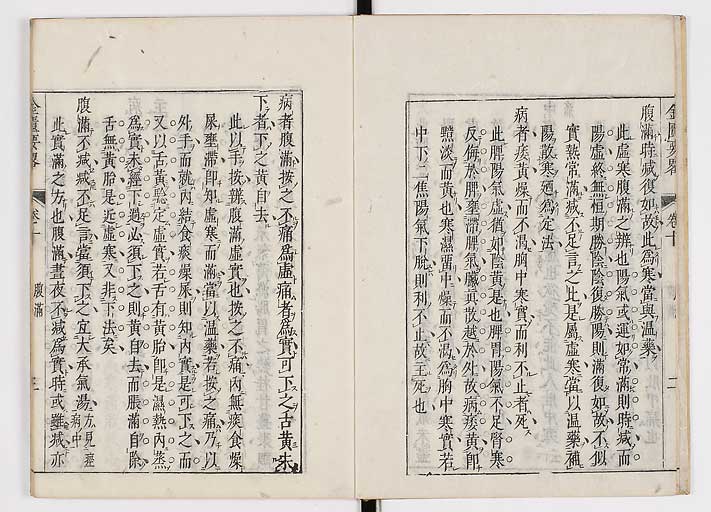 腹滿時減復如故此爲寒當與溫藥
此虛寒腹滿之辨也陽氣或運如常滿則時減而
陽虛終無桓期勝陰陰復勝陽則滿復如故不似
實熱常滿減不足言之此是屬虛寒當以溫藥補
陽散寒廻爲定法
病者痿黃燥而不渴胸中寒實而利不止者死
此脾陽氣虛猶如陰黃是也脾胃陽氣不足腎寒
反侮於脾壅滯脾氣臟真散越於外故病痿黃卽
黯淡而黃也寒濕畱中燥而不渴爲胸中寒實若
中下二焦陽氣下脫則利不止故主死也
金匱要略
卷十
二
病者腹滿按之不痛爲虛痛者爲實可下之舌黃未
下者下之黃自去
此以手按辨腹滿虛實也按之不痛內無痰食燥
屎壅滯卽知虛寒而滿當以溫藥若按之痛乃以
外手而就內結食痰燥屎則知內實是可下之而
又以舌黃驗定虛實若舌有黃胎卽是濕熱內蒸
爲實未經下過必須下之則黃自去而脹滿自除
舌無黃胎是近虛寒又非下法矣
腹滿不減減不足言當須下之宜大承氣湯方見痙病中
此實滿之方也腹滿晝夜不減爲實時或雖減亦
金匱要略
卷十
腹滿
三